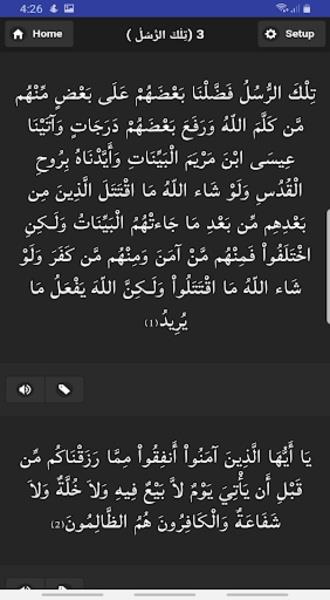 4:26
Home
3 (تِلْكَ الرُّسُلُ )
Setup
تِلْكَ الرُّسُلُ فَضَّلْنَا بَعْضَهُمْ عَلَى بَعْضٍ مِّنْهُم
مَّن كَلَّمَ اللّهُ وَرَفَعَ بَعْضَهُمْ دَرَجَاتٍ وَآتَيْنَا
عِيسَى ابْنَ مَرْيَمَ الْبَيِّنَاتِ وَأَيَّدْنَاهُ بِرُوحِ
الْقُدُسِ وَلَوْ شَاء اللّهُ مَا اقْتَتَلَ الَّذِينَ مِن
بَعْدِهِم مِّن بَعْدِ مَا جَاءتْهُمُ الْبَيِّنَاتُ وَلَـكِنِ
اخْتَلَفُواْ فَمِنْهُم مَّنْ آمَنَ وَمِنْهُم مَّن كَفَرَ وَلَوْ
شَاء اللّهُ مَا اقْتَتَلُواْ وَلَـكِنَّ اللّهَ يَفْعَلُ مَا
يُرِيدُ(1)
يَا أَيُّهَا الَّذِينَ آمَنُواْ أَنفِقُواْ مِمَّا رَزَقْنَاكُم مِّن
قَبْلِ أَن يَأْتِيَ يَوْمٌ لاَّ بَيْعٌ فِيهِ وَلاَ خُلَّةٌ وَلاَ
شَفَاعَةٌ وَالْكَافِرُونَ هُمُ الظَّالِمُونَ(2)